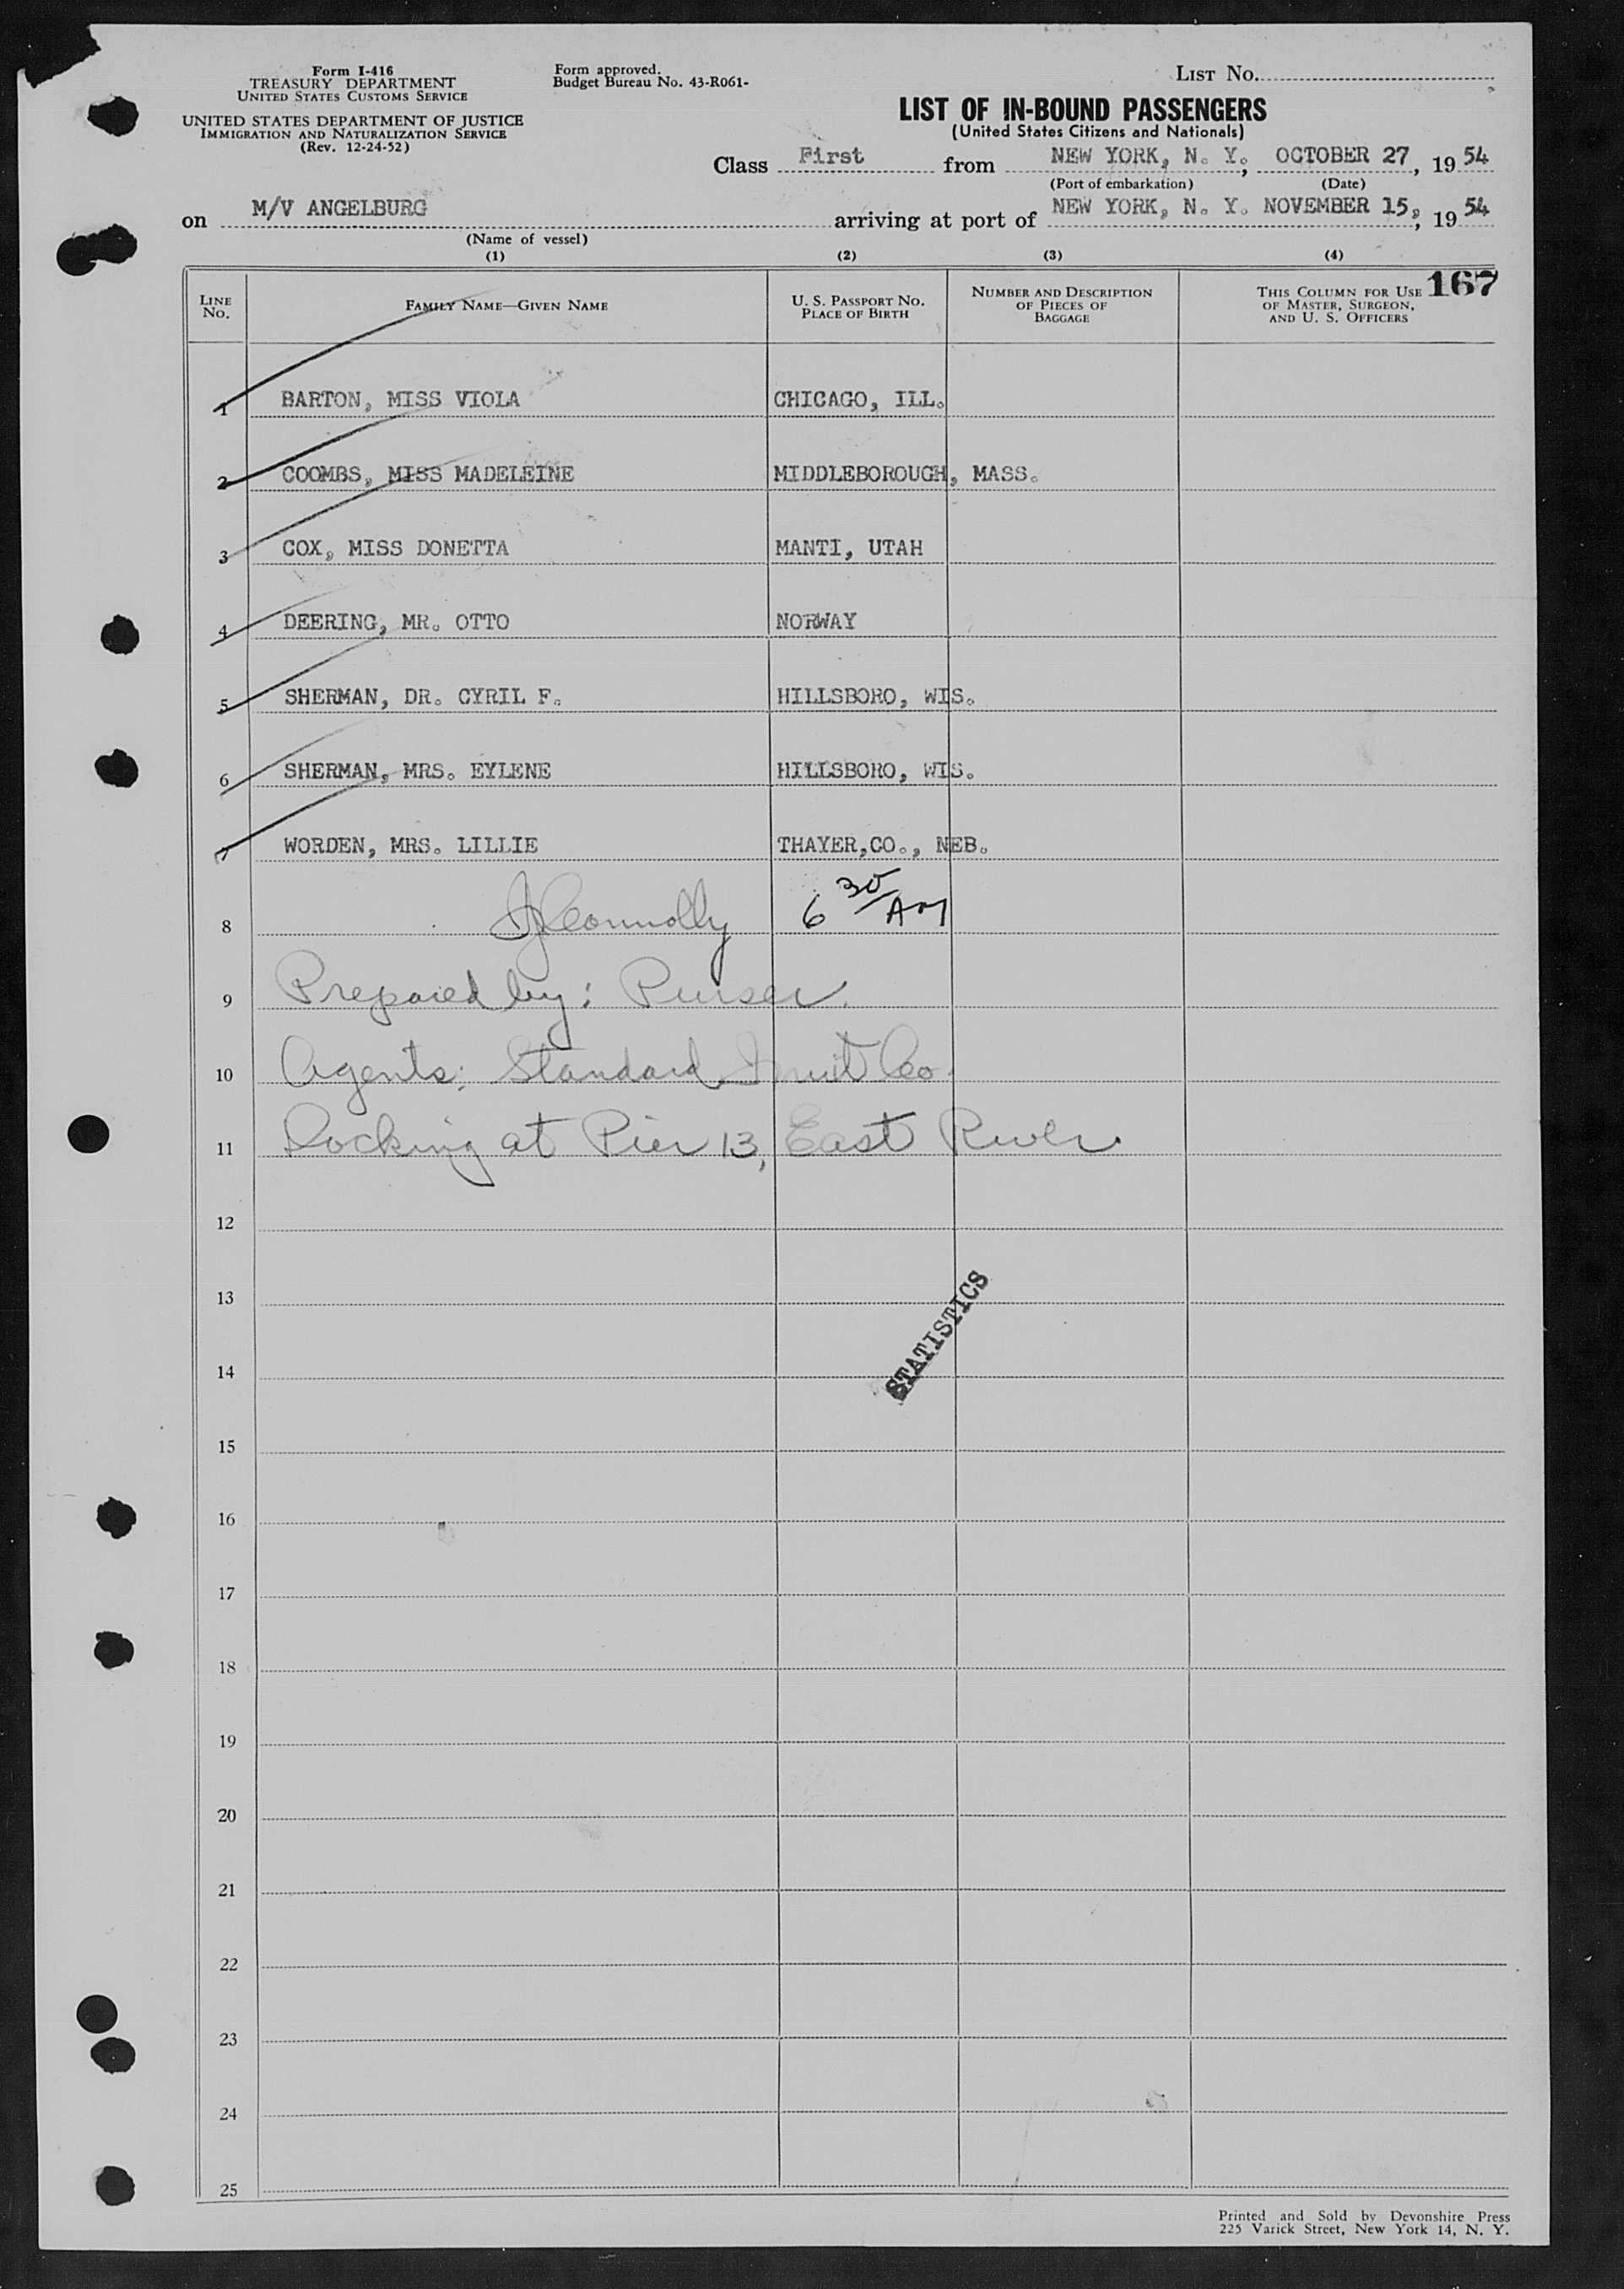 Form I-416
TREASURY DEPARTMENT
UNITED STATES CUSTOMS SERVICE
UNITED STATES DEPARTMENT OF JUSTICE
IMMIGRATION AND NATURALIZATION SERVICE
(Rev. 12-24-52)
Form approved.
Budget Bureau No. 43-R061-
LIST NO.
LIST OF IN-BOUND PASSENGERS
(United States Citizens and Nationals)
Class First from NEW YORK, N. Y., OCTOBER 27, 19 54
(Port of embarkation) (Date)
on M/V ANGELBURG arriving at port of NEW YORK, N. Y. NOVEMBER 15, 19 54
(Name of vessel)
(1) (2) (3) (4)
167
LINE NO. FAMILY NAME—GIVEN NAME U. S. PASSPORT NO. PLACE OF BIRTH NUMBER AND DESCRIPTION OF PIECES OF BAGGAGE THIS COLUMN FOR USE OF MASTER, SURGEON, AND U. S. OFFICERS
1 BARTON, MISS VIOLA CHICAGO, ILL.
2 COOMBS, MISS MADELEINE MIDDLEBOROUGH, MASS.
3 COX, MISS DONETTA MANTI, UTAH
4 DEERING, MR. OTTO NORWAY
5 SHERMAN, DR. CYRIL F. HILLSBORO, WIS.
6 SHERMAN, MRS. EYLENE HILLSBORO, WIS.
7 WORDEN, MRS. LILLIE THAYER,CO., NEB.
8 Connolly 6 30 AM
9 Prepared by: Purser.
10 Agents: Standard Fruit Co.
11 Docking at Pier 13, East River
12
13
STATISTICS
14
15
16
17
18
19
20
21
22
23
24
25
Printed and Sold by Devonshire Press
225 Varick Street, New York 14, N. Y.